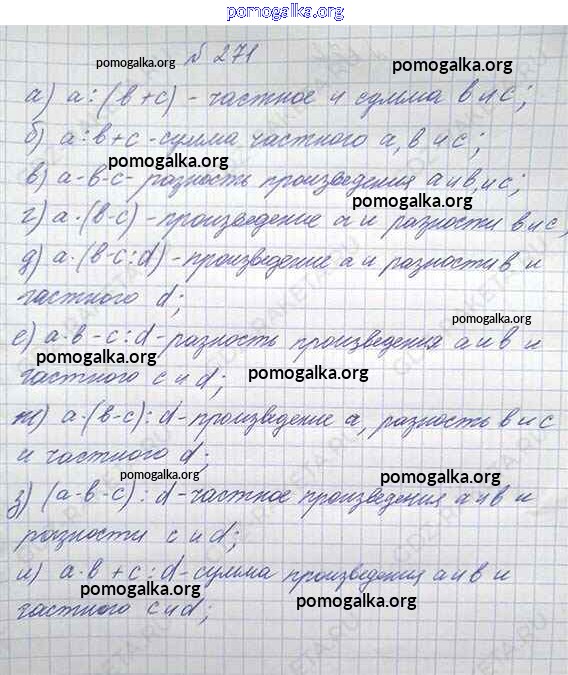 pomogalka.org
pomogalka.org № 271 pomogalka.org
а) a : (b + c) - частное и сумма b и c;
б) a : b + c - сумма частного a, b и c;
pomogalka.org
в) a · b - c - разность произведения a и b, и c;
pomogalka.org
г) a · (b - c) - произведение a и разности b и c,
pomogalka.org
д) a · (b - c : d) - произведение a и разности b и
частного d;
pomogalka.org
е) a · b - c : d - разность произведения a и b и
pomogalka.org
частного c и d; pomogalka.org
ж) a · (b - c) : d - произведение a, разность b и c
и частного d;
pomogalka.org pomogalka.org
з) (a · b - c) : d - частное произведения a и b и
разности c и d;
pomogalka.org
и) a · b + c : d - сумма произведения a и b и
pomogalka.org pomogalka.org
частного c и d;